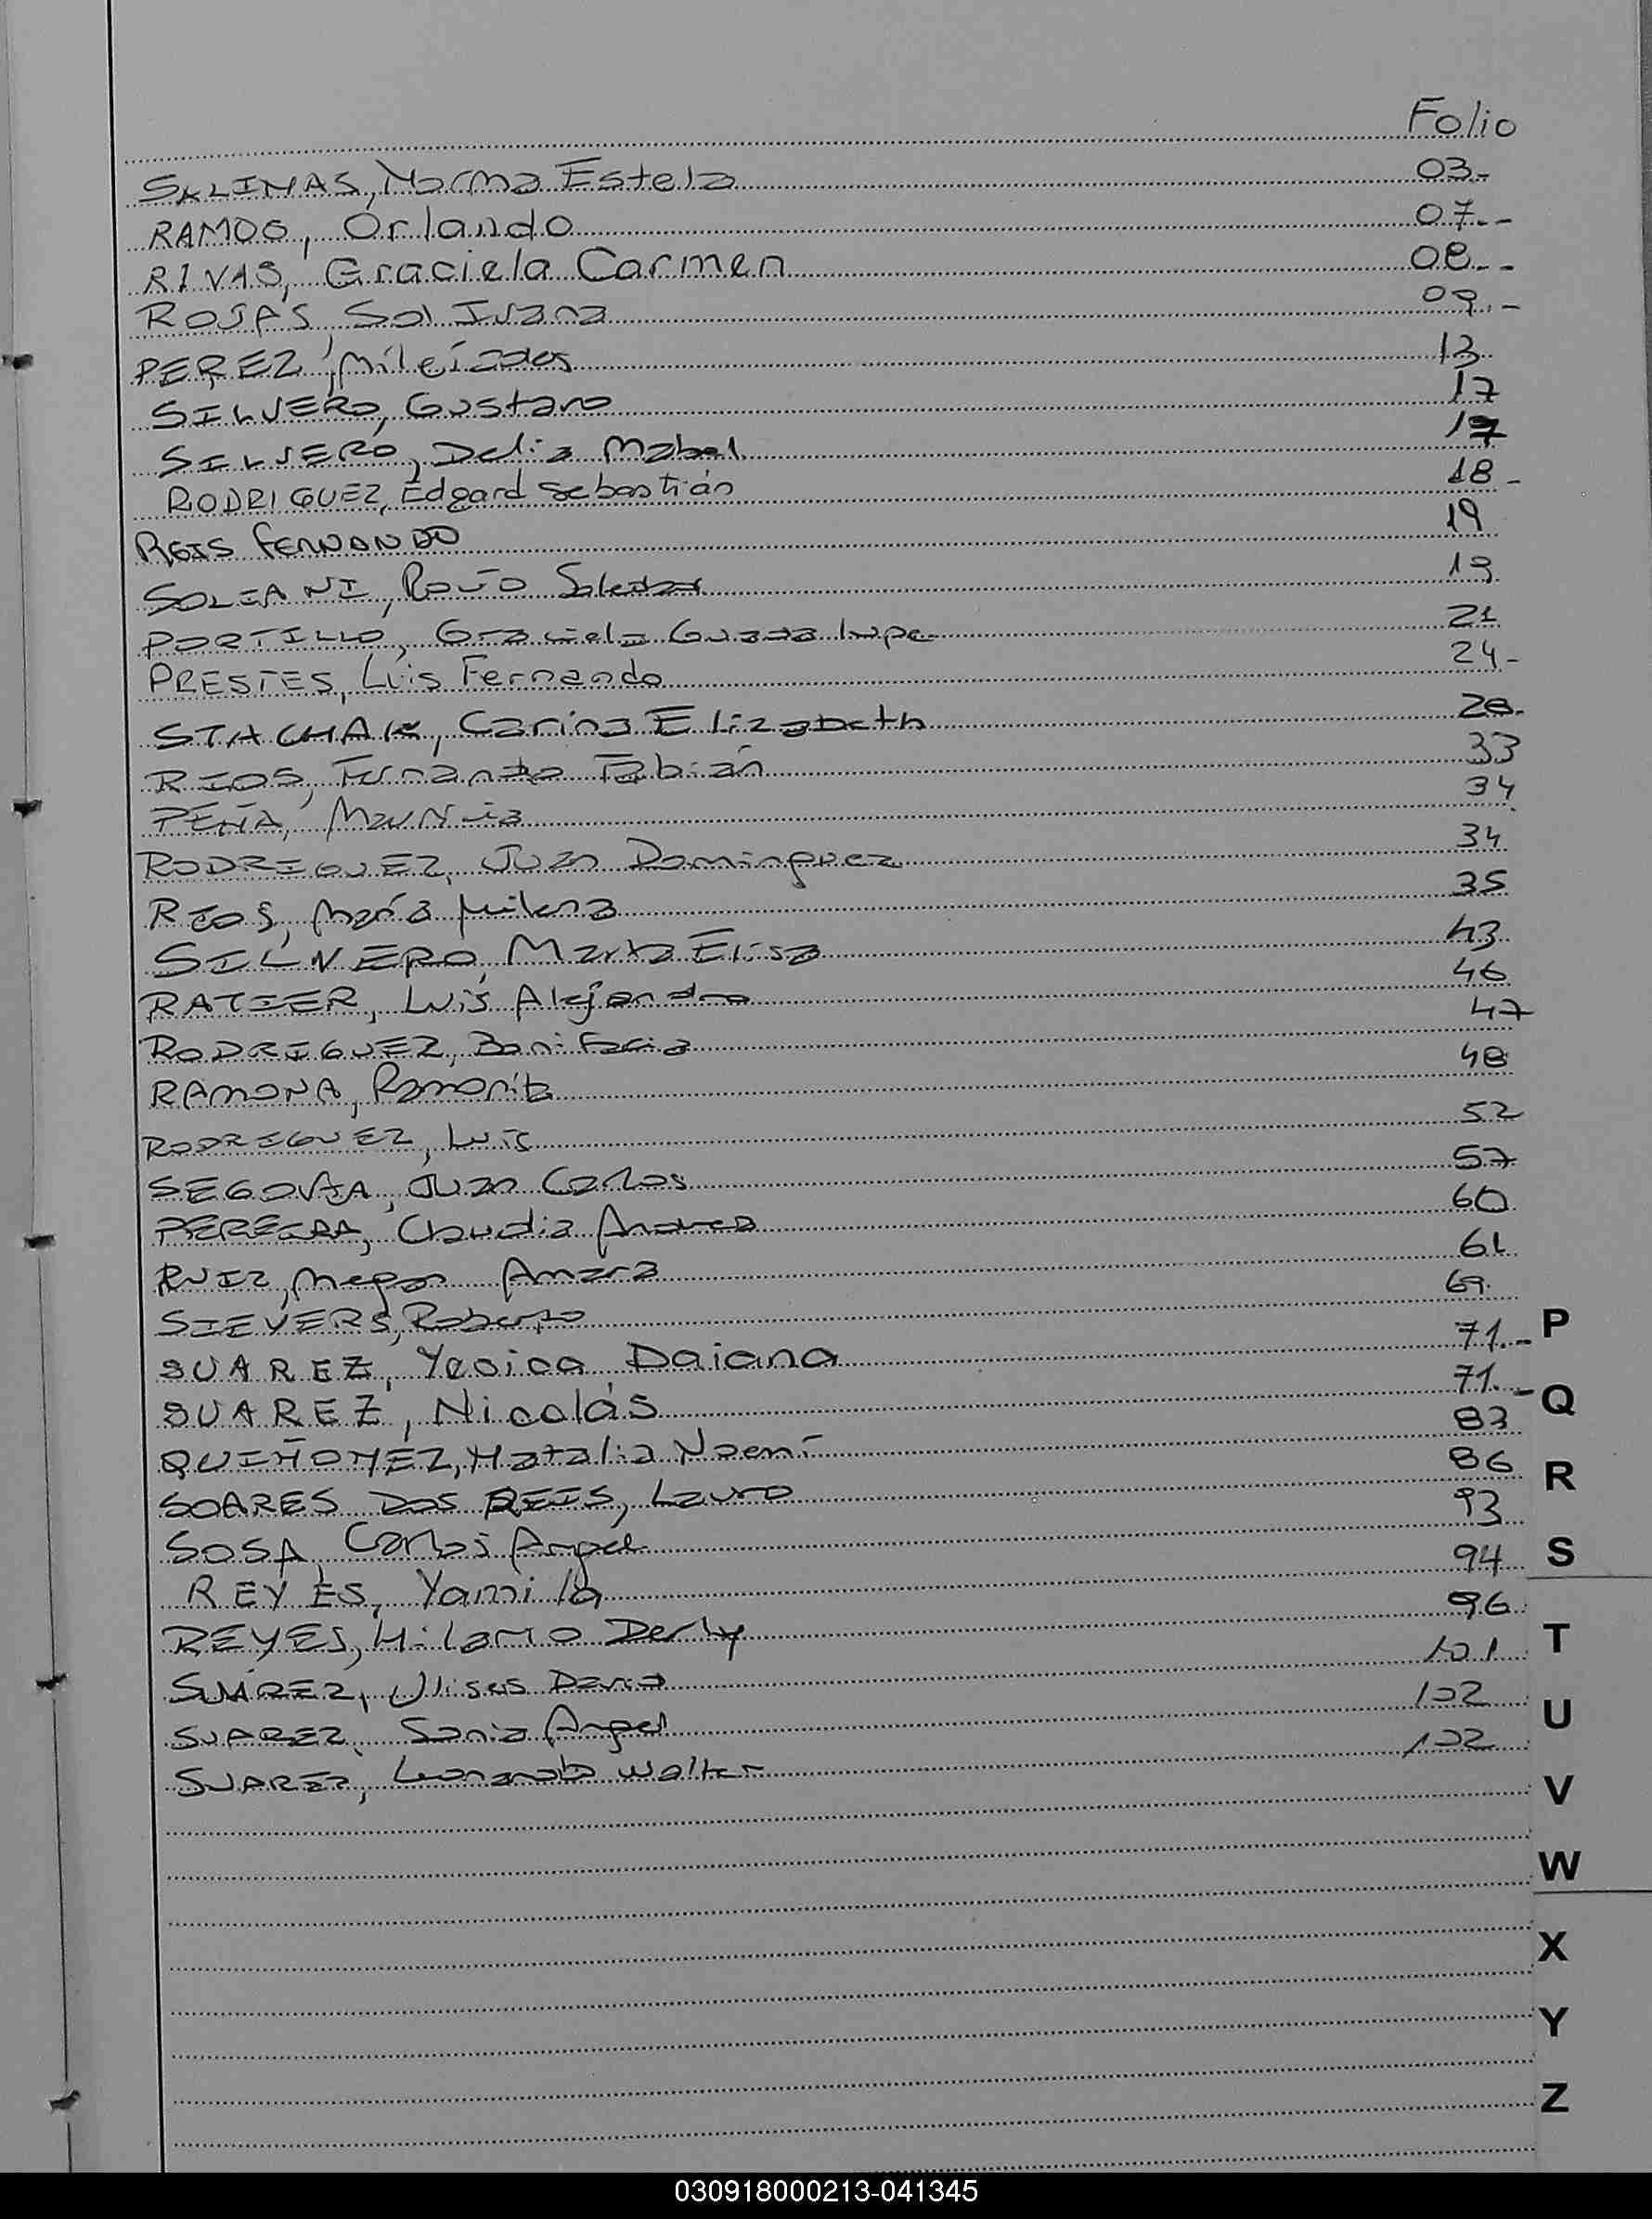 Folio
SALINAS, Norma Estela 03.-
RAMOS, Orlando 07.--
RIVAS, Graciela Carmen 08.--
ROSAS, Sol Ivana 09.-
PEREZ, 13
SILVERO, Gustavo 17
SILVERO, Delia Mabel 17
RODRIGUEZ, Edgard Sebastián 18.-
REIS FERNANDO 19
SOLIANI, Rocío Soledad 19
PORTILLO, Graciela Guadalupe 21
PRESTES, Luis Fernando 24.-
STACHAK, Carina Elizabeth 28.
RIOS, Fernando Fabián 33
PEÑA, Mauricia 34
RODRIGUEZ, Juan Dominguez 34
RIOS, María Milena 35
SILVERO, Marta Elisa 43
RATIER, Luis Alejandro 46
RODRIGUEZ, Bonifacia 47
RAMONA, Ramonita 48
RODRIGUEZ, Luis 52
SEGOVIA, Juan Carlos 57
PEREIRA, Claudia Andrea 60
RUIZ, Megan Amara 61
SIEVERS, Roberto 69
SUAREZ, Yesica Daiana 71.-
SUAREZ, Nicolás 71.-
QUIÑONEZ, Natalia Noemí 83
SOARES DOS REIS, Lauro 86
SOSA, Carlos Angel 93
REYES, Yamila 94
REYES, Hilario Derly 96
SUÁREZ, Ulises Dario 101
SUAREZ, Sonia Angel 102
SUAREZ, Leonardo Walter 102
P
Q
R
S
T
U
V
W
X
Y
Z
030918000213-041345